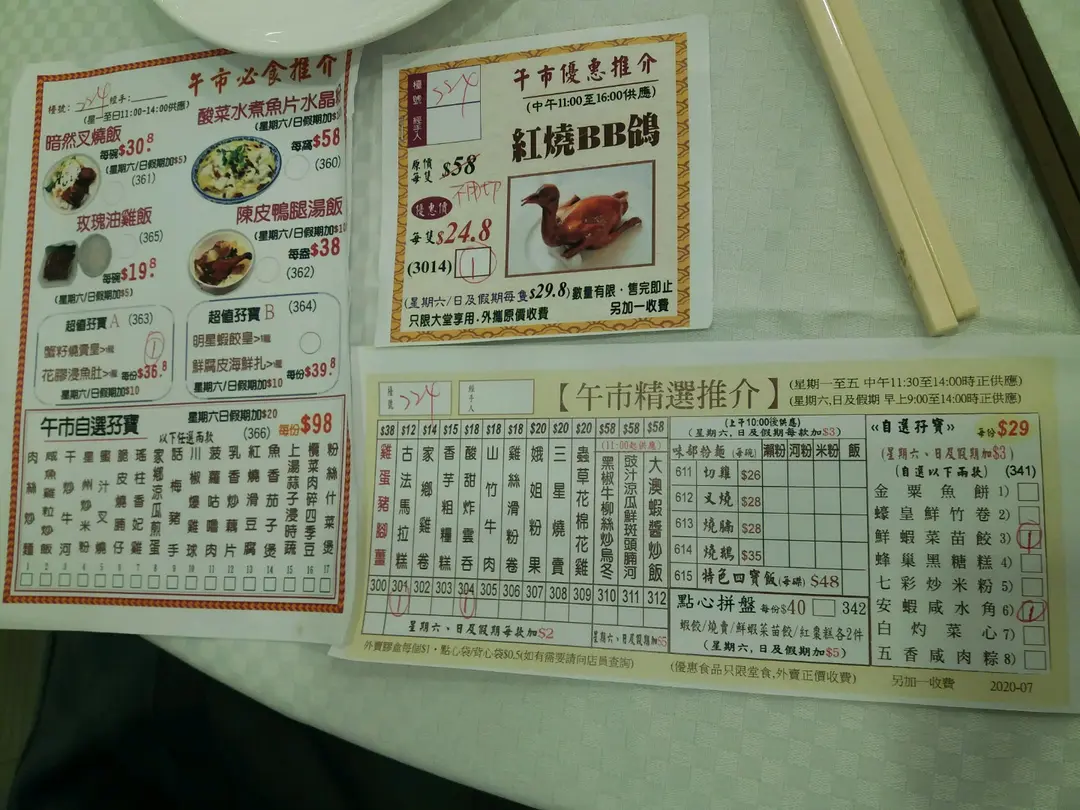 午市必食推介
檯號: 224 經手:
(星一至日11:00-14:00供應)
暗然叉燒飯
每碗$30.8
(星期六/日假期加$5)
(361)
酸菜水煮魚片水晶
(星期六/日假期加$
每窩$58
(360)
玫瑰油雞飯
(365)
每碗$19.8
(星期六/日假期加$5)
陳皮鴨腿湯飯
(星期六/日假期加$10
每盎$38
(362)
超值孖寶A (363)
蟹籽燒賣皇>1籠
花膠浸魚肚>1籠 每份$36.8
(星期六/日假期加$10
1
超值孖寶B (364)
明星蝦餃皇>1籠
鮮腐皮海鮮扎>1籠
(星期六/日假期加$10 每份$39.8
午市自選孖寶
星期六日假期加$20
以下任選兩款 (366) 每份$98
肉絲炒麵 1
鹹魚雞粒炒飯 2
干炒牛河 3
星州炒米粉 4
蜜汁叉燒 5
脆皮燒腩仔 6
瑤柱香妃雞 7
家鄉涼瓜煎蛋 8
話梅豬手 9
川椒爆雞球 10
菠蘿咕嚕肉 11
乳香炒藕片 12
紅燒滑豆腐 13
魚香茄子煲 14
上湯蒜子浸時蔬 15
欖菜肉碎四季豆 16
粉絲什菜煲 17
檯號 224
經手人
午市優惠推介
(中午11:00至16:00供應)
紅燒BB鴿
原價每隻 $58
優惠價
每隻$24.8
(3014) 1
(星期六/日及假期每隻$29.8)數量有限﹐售完即止
只限大堂享用﹐外攜原價收費 另加一收費
檯號 224
經手人
【午市精選推介】
(星期一至五 中午11:30至14:00時正供應)
(星期六,日及假期 早上9:00至14:00時正供應)
$38 雞蛋豬腳薑 300
$12 古法馬拉糕 301 1
$14 家鄉雞卷 302
$15 香芋粗糧糕 303
$18 酸甜炸雲吞 304 1
$18 山竹牛肉 305
$18 雞絲滑粉卷 306
$20 娥姐粉果 307
$20 三星燒賣 308
$20 蟲草花棉花雞 309
(11:00起供應)
$58 黑椒牛柳絲炒烏冬 310
$58 豉汁涼瓜鮮斑頭腩河 311
$58 大澳蝦醬炒飯 312
星期六、日及假期每款加$2
星期六、日及假期加$5
(上午10:00後供應)
(星期六、日及假期每款加$3)
味部粉麵 (每碗) 瀨粉 河粉 米粉 飯
611 切雞 $26
612 叉燒 $28
613 燒腩 $28
614 燒鵝 $35
615 特色四寶飯(每碟) $48
點心拼盤 每份$40 342
蝦餃/燒賣/鮮蝦菜苗餃/紅棗糕各2件
(星期六,日及假期加$5)
«自選孖寶» 每份$29
(星期六、日及假期加$3)
(自選以下兩款) (341)
金粟魚餅1)
蠔皇鮮竹卷2)
鮮蝦菜苗餃3) 1
蜂巢黑糖糕4)
七彩炒米粉5)
安蝦咸水角6) 1
白灼菜心7)
五香咸肉粽8)
外賣膠盒每個$1﹐點心袋/背心袋$0.5(如有需要請向店員查詢)
(優惠食品只限堂食,外賣正價收費)
另加一收費 2020-07